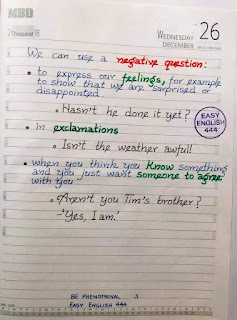 MBD
2 Thousand 18
WEDNESDAY 26
DECEMBER
We can use a negative question:
• to express our feelings, for example
to show that we are surprised or
disappointed.
• Hasn't he done it yet?
EASY
ENGLISH
444
• in exclamations
• Isn't the weather awful!
• when you think you know something
and you just want someone to agree
with you
• Aren't you Tim's brother?
-'Yes, I am.'
BE PHENOMENAL
EASY ENGLISH 444